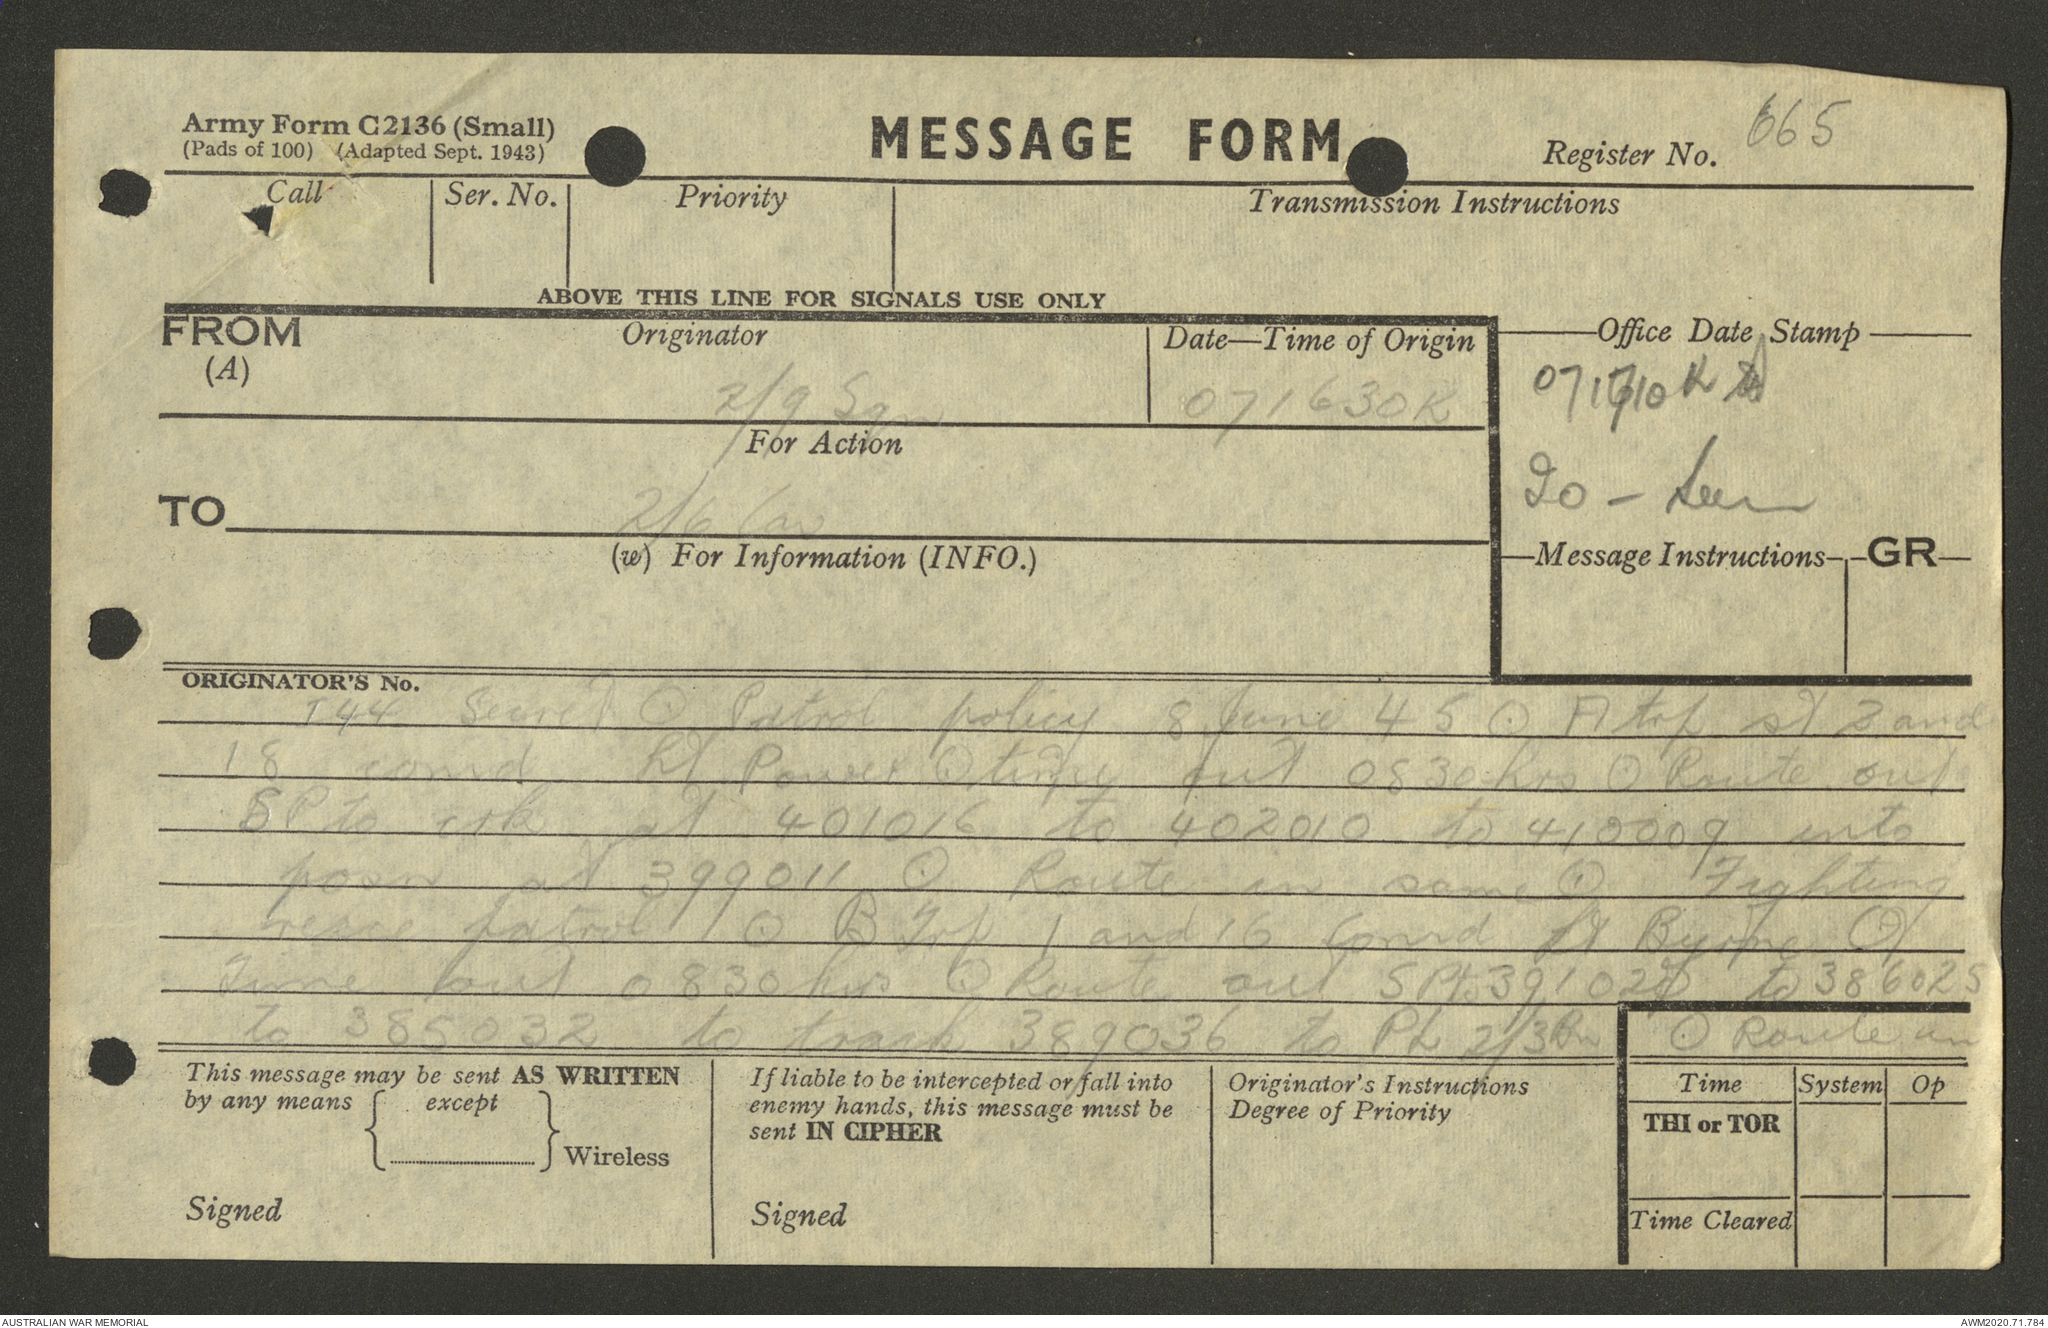 Army Form C2136 (Small)
(Pads of 100) (Adapted Sept. 1943)
MESSAGE FORM
Register No. 665
Call Ser. No. Priority Transmission Instructions
ABOVE THIS LINE FOR SIGNALS USE ONLY
FROM
(A)
Originator
2/9 Sqn
Date—Time of Origin
071630K
Office Date Stamp
For Action
TO
2/6 Cav
IO - Seen
(w) For Information (INFO.)
Message Instructions GR
ORIGINATOR'S No.
T44 Secret O Patrol policy 8 June 45 O A trp st 3 and
18 comd Lt Power O time out 0830 hrs O Route out
SP to at 401016 to 402010 to 410009 into
posn at 399011 O Route in same O Fighting
patrol O B Trp 1 and 16 Comd Lt Byrne O
Time out 0830 hrs O Route out SP to to 386025
to 385032 to track 389036 to PL 2/3 Bn O Route in
This message may be sent AS WRITTEN
by any means { except } Wireless
Signed
If liable to be intercepted or fall into
enemy hands, this message must be
sent IN CIPHER
Signed
Originator's Instructions
Degree of Priority
Time System Op
THI or TOR
Time Cleared
AUSTRALIAN WAR MEMORIAL
AWM2020.71.784